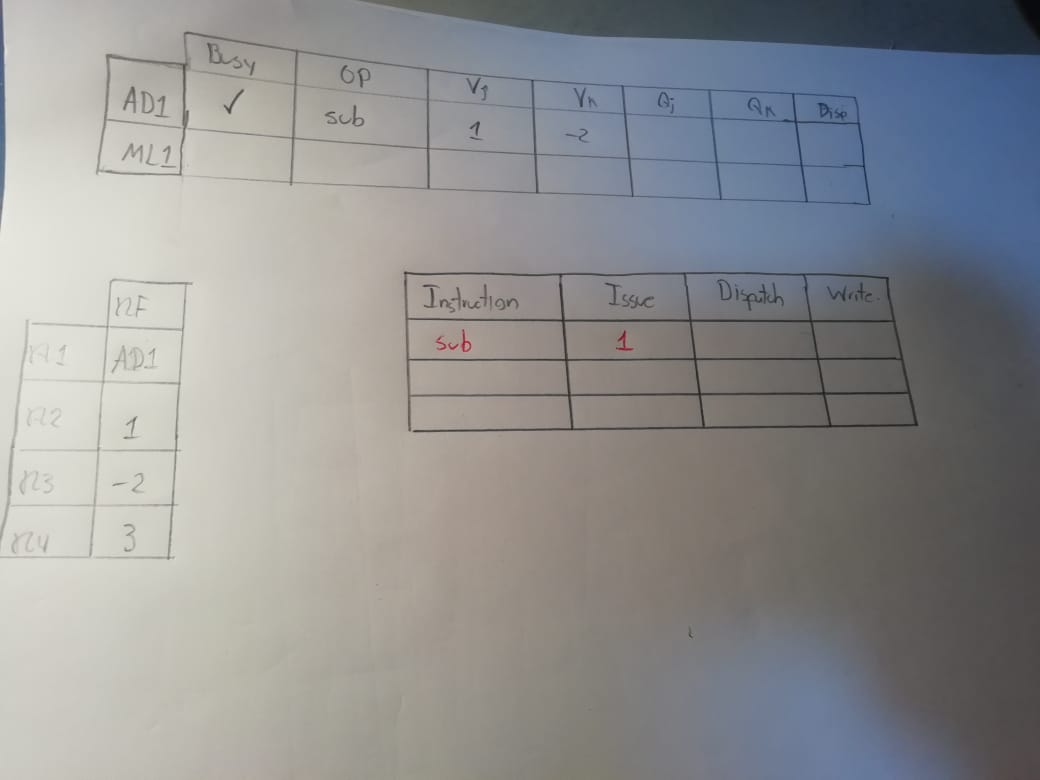 Busy OP Vj Vk Qj Qk Disp
AD1 ✓ sub 1 -2
ML1
RF
R1 AD1
R2 1
R3 -2
R4 3
Instruction Issue Dispatch Write.
sub 1